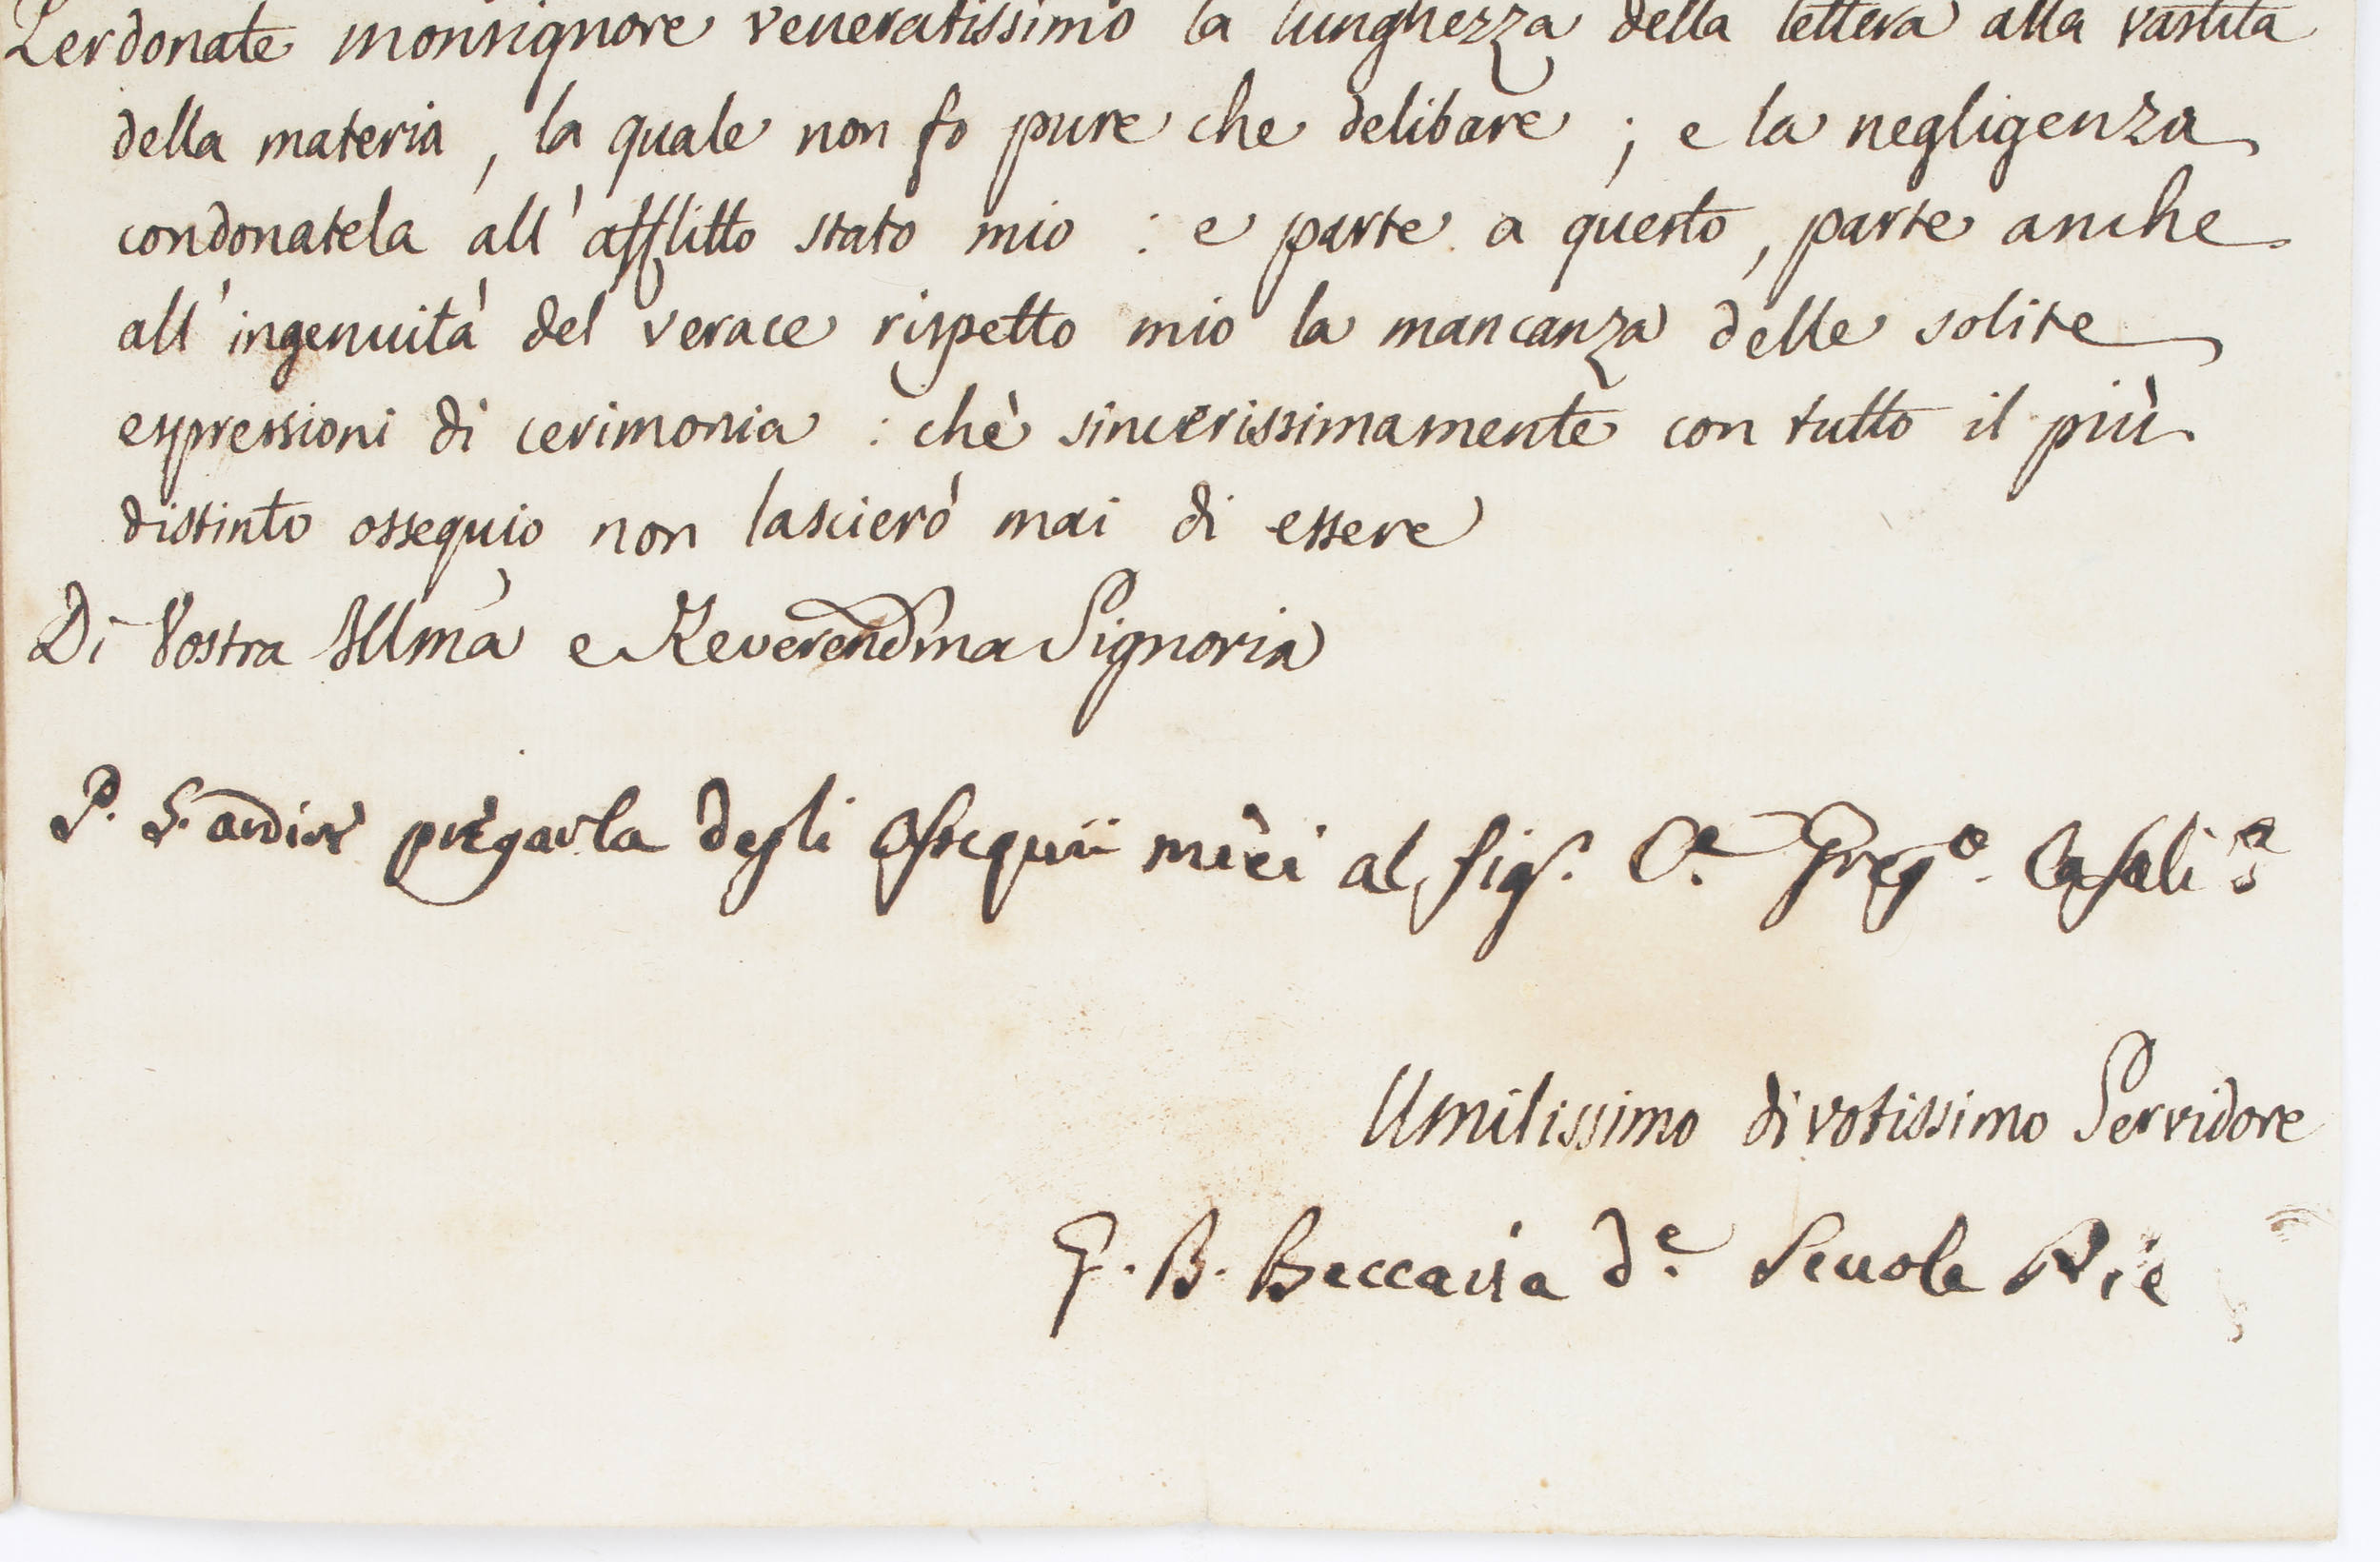 Perdonate monsignore veneratissimo la lunghezza della lettera alla vastità
della materia, la quale non fo pure che delibare; e la negligenza
condonatela all'afflitto stato mio: e parte a questo, parte anche
all'ingenuità del verace rispetto mio la mancanza delle solite
espressioni di cerimonia: chè sincerissimamente con tutto il più
distinto ossequio non lascierò mai di essere
Di Vostra Illma e Reverendma Signoria
P. S. ardisc pregarla degli ossequii miei al sigr. Ce. Grego. Casali
Umilissimo divotissimo Servidore
G. B. Beccaria de. Scuole Pie